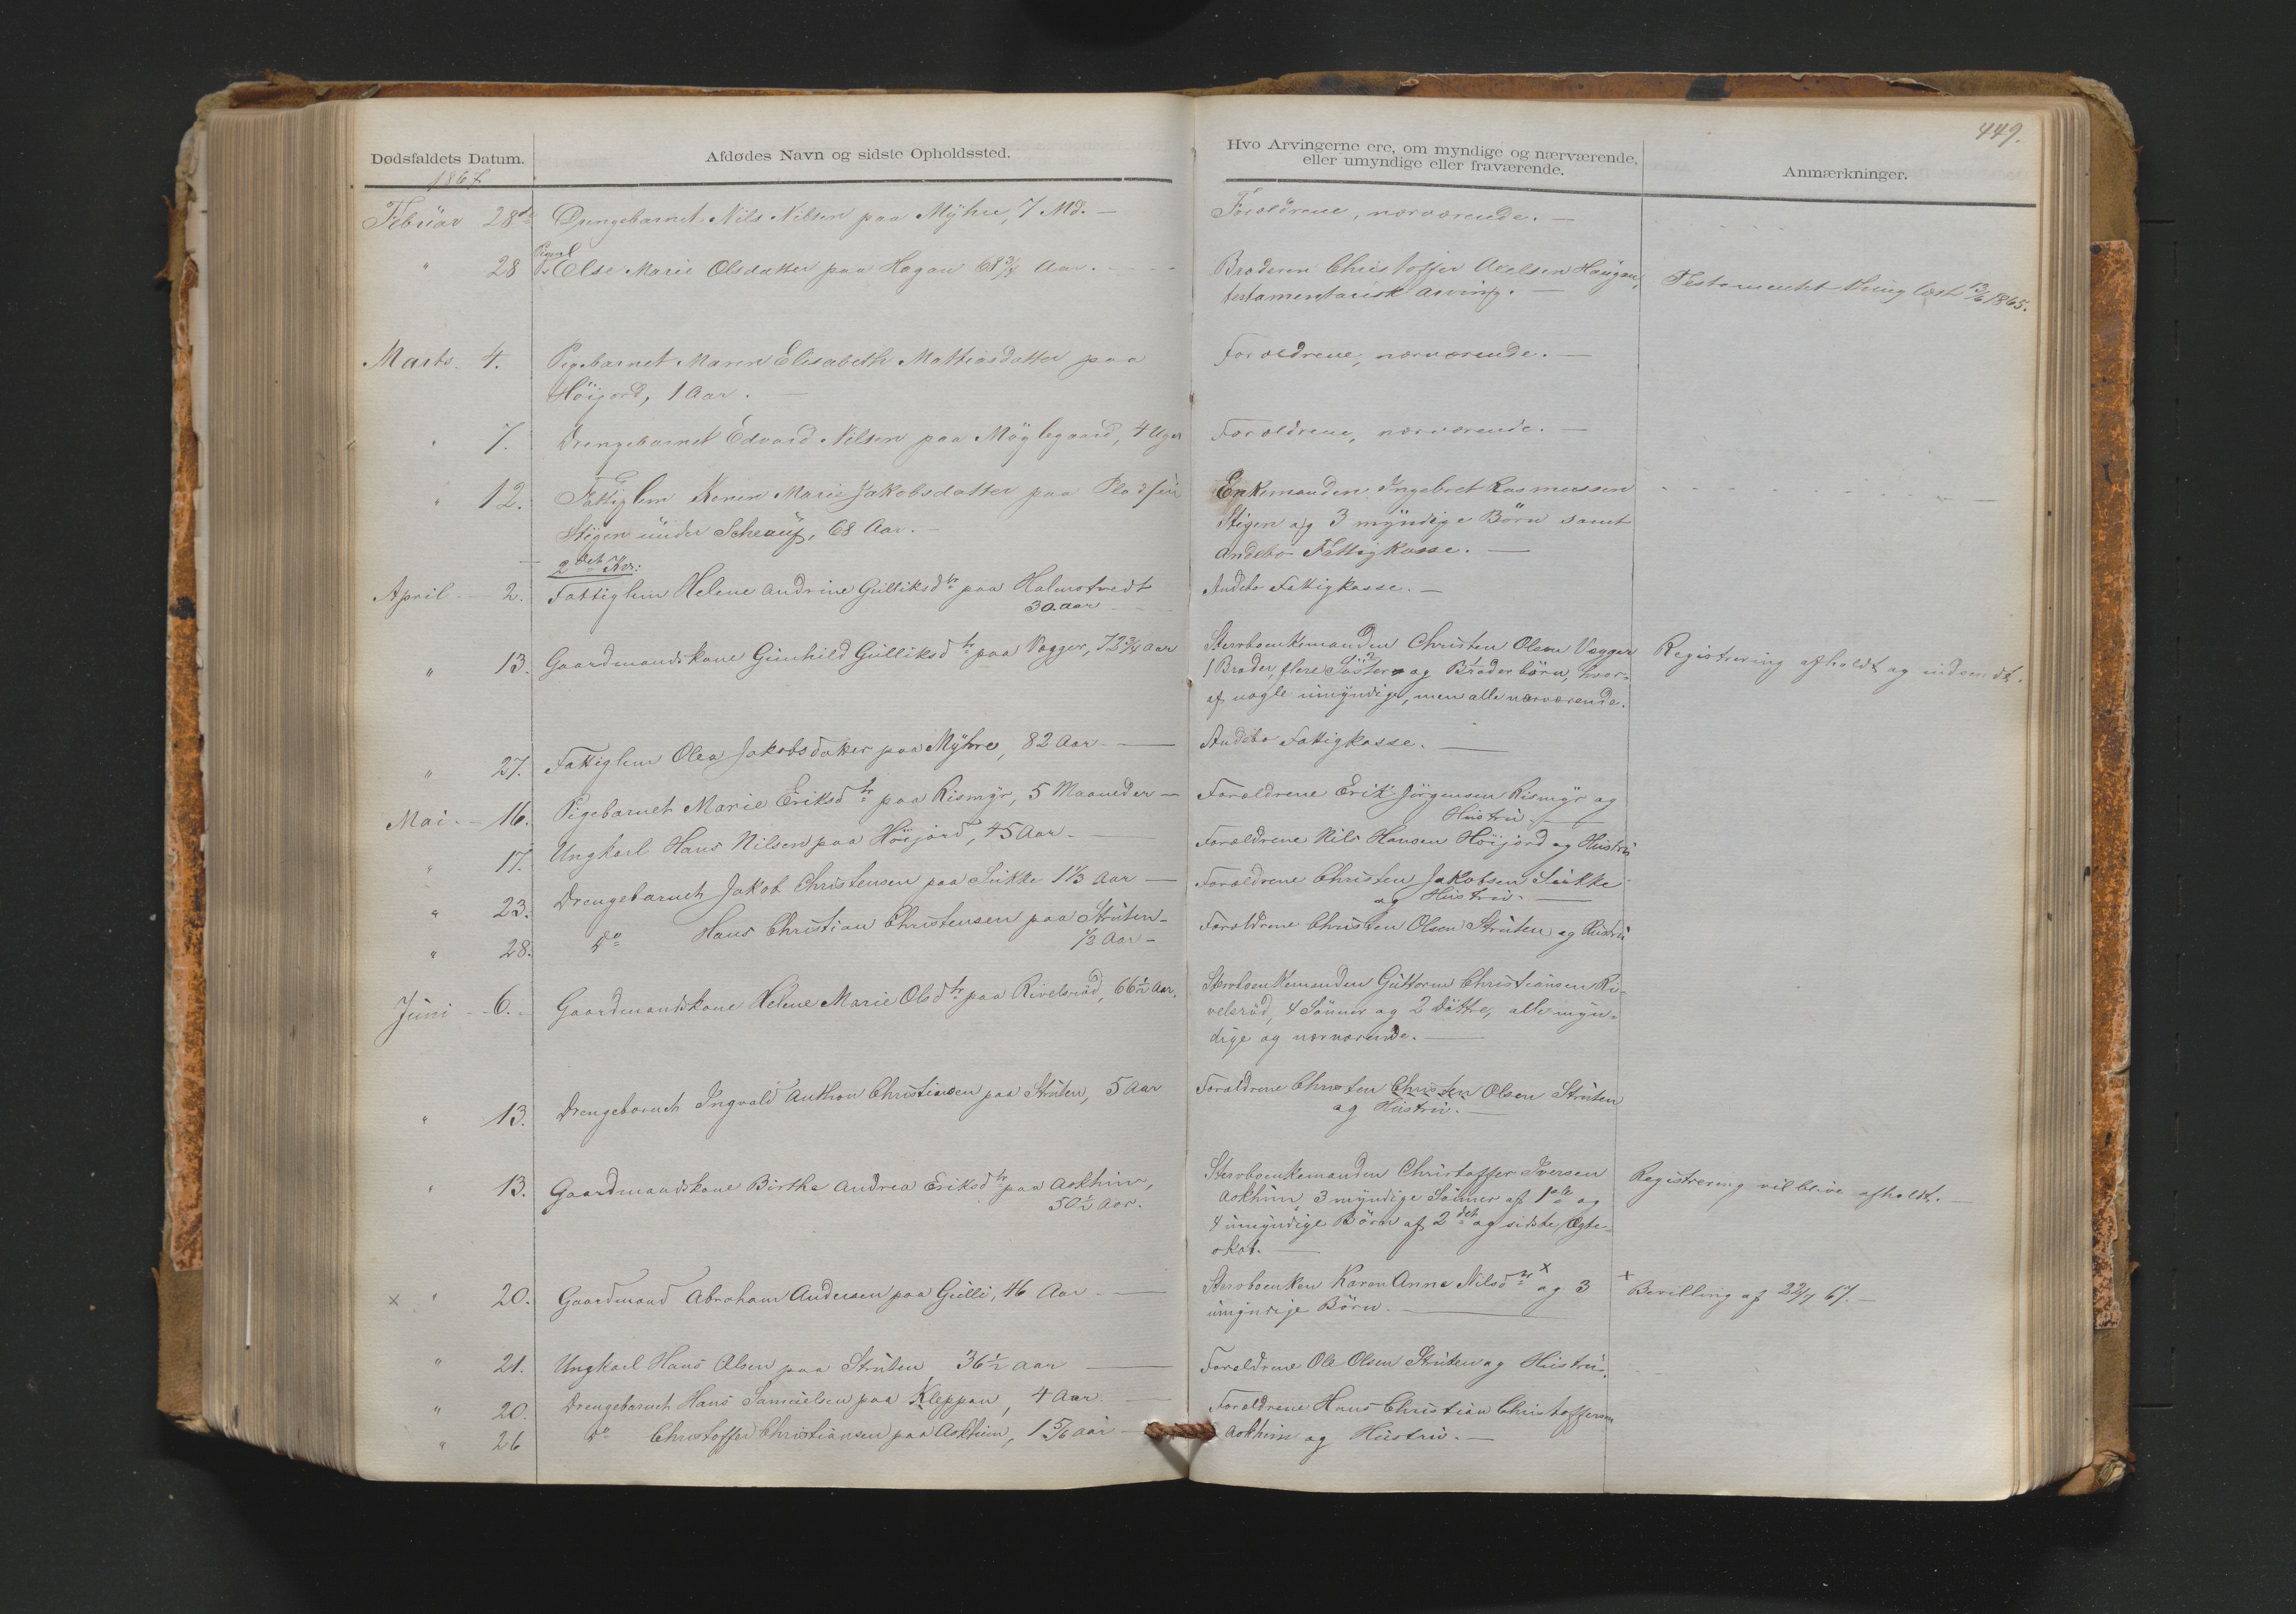 449.
Dødsfaldets Datum.
Afdødes Navn og sidste Opholdssted.
Hvo Arvingerne ere, om myndige og nærværende,
eller umyndige eller fraværende.
Anmærkninger.
1867
Februar 28de Drengebarnet Nils Nilsen paa Myhre, 7 Md. —
Forældrene, nærværende. —
" 28 Else Marie Olsdatter paa Hagan 68 3/4 Aar. —
Broderen Christoffer Haugan,
testamentarisk Arving. —
Testamentet thinglæst 13/6 1865.
Marts. 4. Pigebarnet Maren Elisabeth Mathiasdatter paa
Höijord, 1 Aar. —
Forældrene, nærværende. —
" 7. Drengebarnet Edvard Nilsen paa Möglegaard, 4 Uger
Forældrene, nærværende. —
" 12. Fattiglem Karen Marie Jakobsdatter paa Pladsen
Stigen under Schauf, 68 Aar. —
Enkemanden Ingebret Rasmussen
Stigen og 3 myndige Börn samt
Andebo Fattigkasse. —
2det Kv:
April 2. Fattiglem Helene Andrine Gulliksdtr paa Halmstvedt
30. Aar
Andebo Fattigkasse. —
" 13. Gaardmandskone Gunhild Gulliksdtr paa Vegger, 72 3/4 Aar
Stervboenkemanden Christen Olsen Vegger
1 Broder, flere Söster og Broderbörn, hvor-
af nogle umyndige, men alle nærværende.
Registrering afholdt og indsendt.
" 27. Fattiglem Olea Jakobsdatter paa Myhre, 82 Aar. —
Andebo Fattigkasse. —
Mai. 16. Pigebarnet Marie Eriksdtr paa Rismyr, 5 Maaneder —
Forældrene Erik Jörgensen Rismyr og
Hustru. —
" 17. Ungkarl Hans Nilsen paa Höijord, 45 Aar. —
Forældrene Nils Hansen Höijord og Hustru
" 23. Drengebarnet Jakob Christensen paa Sukke 1 1/3 Aar —
Forældrene Christen Jakobsen Sukke
og Hustru. —
" 28. do Hans Christian Christensen paa Struten —
1/3 Aar —
Forældrene Christen Olsen Struten og Hustru
Juni 6. Gaardmandskone Helene Marie Olsdtr paa Rivelsröd, 66 1/2 Aar.
Stervboenkemanden Guttorm Christiansen Ri-
velsröd, 4 Sönner og 2 Döttre, alle myn-
dige og nærværende. —
" 13. Drengebarnet Ingvald Anthon Christensen paa Struten, 5 Aar
Forældrene Christen Christen Olsen Struten
og Hustru. —
" 13. Gaardmandskone Birthe Andrea Eriksdtr paa Askhim,
50 1/2 Aar.
Stervboenkemanden Christoffer Iversen
Askhim, 3 myndige Sönner af 1ste og
4 umyndige Börn af 2det og sidste Ægte-
skab. —
Registrering vil blive afholdt.
x " 20. Gaardmand Abraham Andersen paa Gulli, 46 Aar —
Stervboenken Karen Anne Nilsdtr x og 3
umyndige Börn. —
x Bevilling af 22/7 67. —
" 21. Ungkarl Hans Olsen paa Struten 36 1/2 Aar —
Forældrene Ole Olsen Struten og Hustru.
" 20. Drengebarnet Hans Samuelsen paa Kleppan, 4 Aar. —
" 26 do Christoffer Christiansen paa Askhim, 1 5/6 Aar —
Forældrene Hans Christian Christoffersen
Askhim og Hustru. —